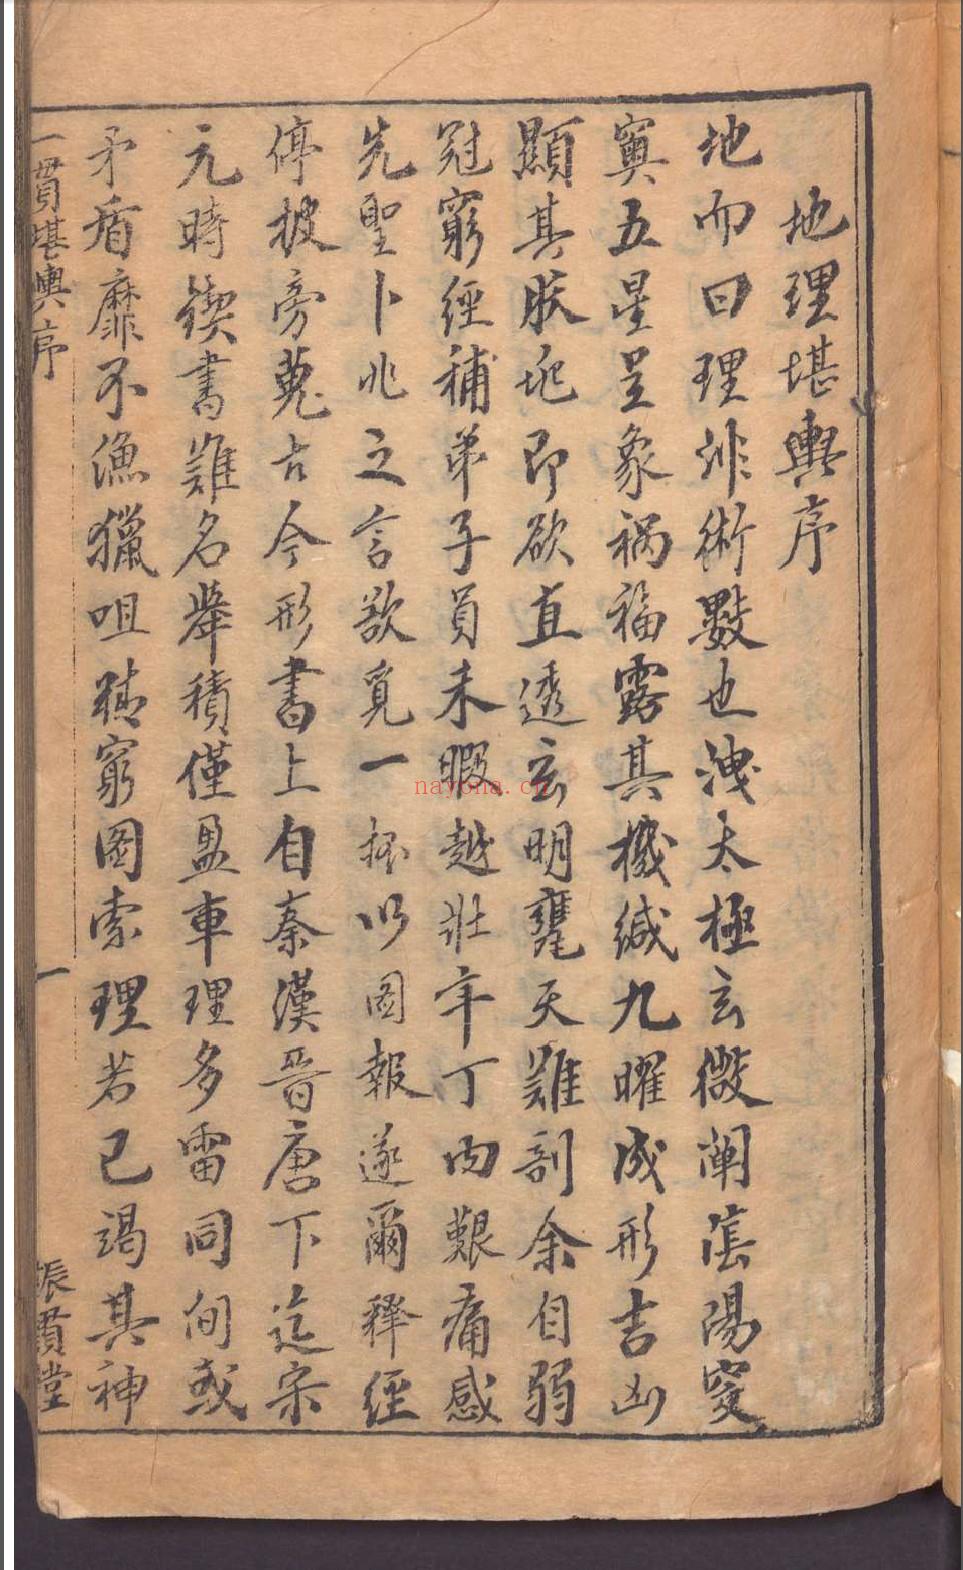 地理堪輿序
地而曰理非術數也洩太極玄微闡陰陽窔
窴五星呈象禍福露其機緘九曜成形吉凶
顯其朕垗即欲直透玄明甕天難剖余自弱
冠窮經補弟子員未暇越壯年丁內艱痛感
先聖卜兆之言欲覓一抔以圖報遂爾釋經
停披旁蒐古今形書上自秦漢晉唐下迄宋
元時鍥書難名犖積僅盈車理多雷同間或
矛盾靡不漁獵咀　窮圖索理若已竭其神
一貫堪輿序
一
振貫堂
nayona.cn